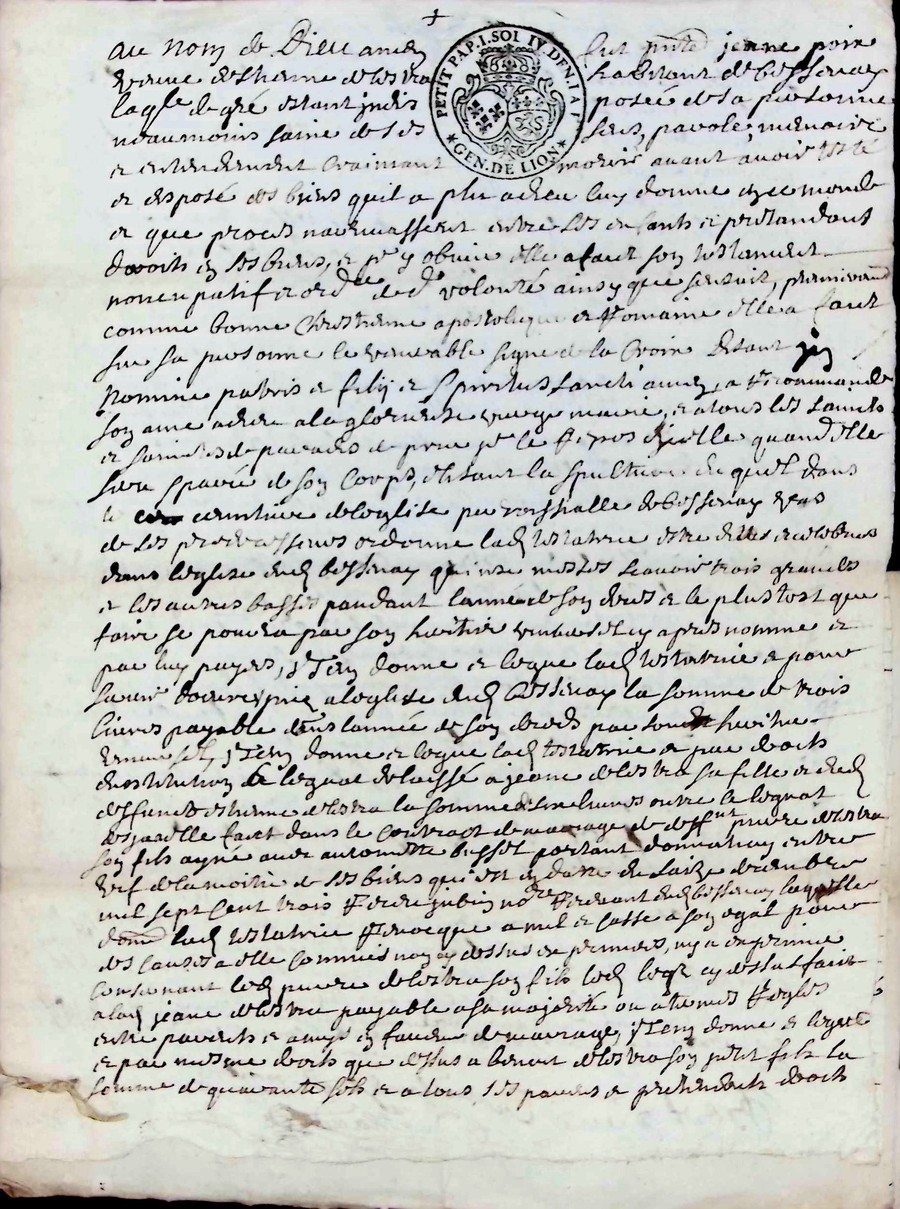 +
PETIT PAP. I. SOL IV. DEN. LA F.
GEN. DE LION
au nom de Dieu amen fut pnte jeane poix
veuve destienne delestra habitant de bessenay
laqle de gré estant indisposée de sa personne
neaumoins saine de ses sens, parole, memoire
et entendement craimant morir avant avoir testé
et disposé des biens quil a plu a dieu luy donne en ce monde
et que proces nauenassent entre ses enfants et pretandant
droits en ses biens, et pr y obuier elle a faict son testament
noncupatif et ordre de de volonté ainsy que sensuit, premierement
comme bonne Chrestienne apostolique et Romaine elle a faict
sur sa personne le venerable signe de la Croix disant in
Nomine patris et filij et Spiritus sancti amen, a recommandé
son ame a dieu a la glorieuse vierge marie, et a tous les saincts
et sainctes de paradis de prier pr le repos dicelle quand elle
sera separée de son corps, elisant la sepulture diceluy dans
le cimetiere de leglise parroissialle de bessenay vas
de ses predecesseurs ordonne ladte testatrice estre dittes et celebrées
dans leglise dudt bessenay quinze messes scavoir trois grandes
et les autres basses pandant lannée de son deces et le plustost que
faire se poura par son heritier universel cy apres nomme et
par luy payées, Item donne et legue ladte testatrice et pour
sauoir doeuvre pie a leglise dudt bessenay la somme de trois
livres payable dans lannée de son deceds par sondt heritier
universel, Item donne et legue ladte testatrice et par droits
dinstitution de legat delaissé a jeane delestra sa fille et dudt
deffunct estienne delestra la somme de livres outre le legat
desja elle faict dans le contract de mariage de deffunt pierre delestra
son fils ayné avec anthoinette besset portant donnation entre
vifs de la moitié de ses biens qui est en datte du saize decembre
mil sept cent trois receu jubin nore reservant dudt bessenay laquelle
donnon ladte testatrice revocque anulle et casse a son egal pour
des causes a elle connues non cy dessus exprimées, ny a exprimer
concernant ledt pierre delestra son fils ledt legat cy dessus faict
a ladte jeane delestra payable a sa majorité ou a termes reglés
entre parents et amys en faveur de mariage, Item donne et legue
et par mesme droits que dessus a benoit delestra son petit fils la
somme de quarante sols et a tous ses parens et pretendants droits